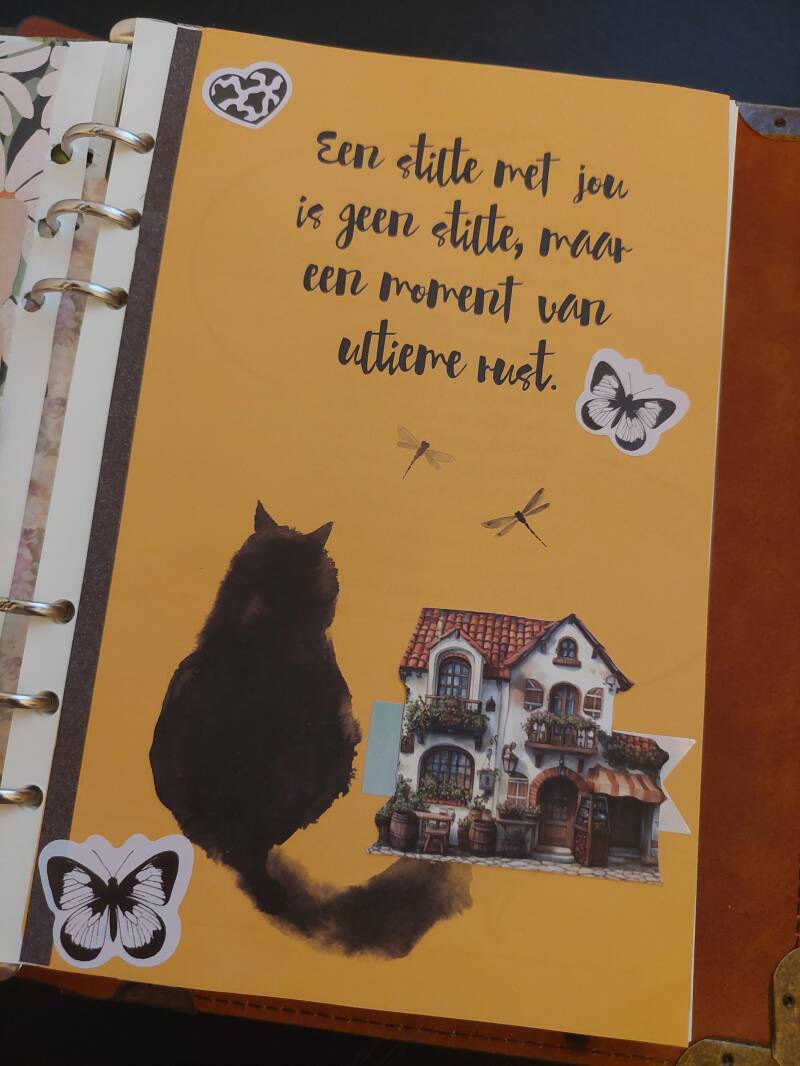 Een stilte met jou
is geen stilte, maar
een moment van
ultieme rust.